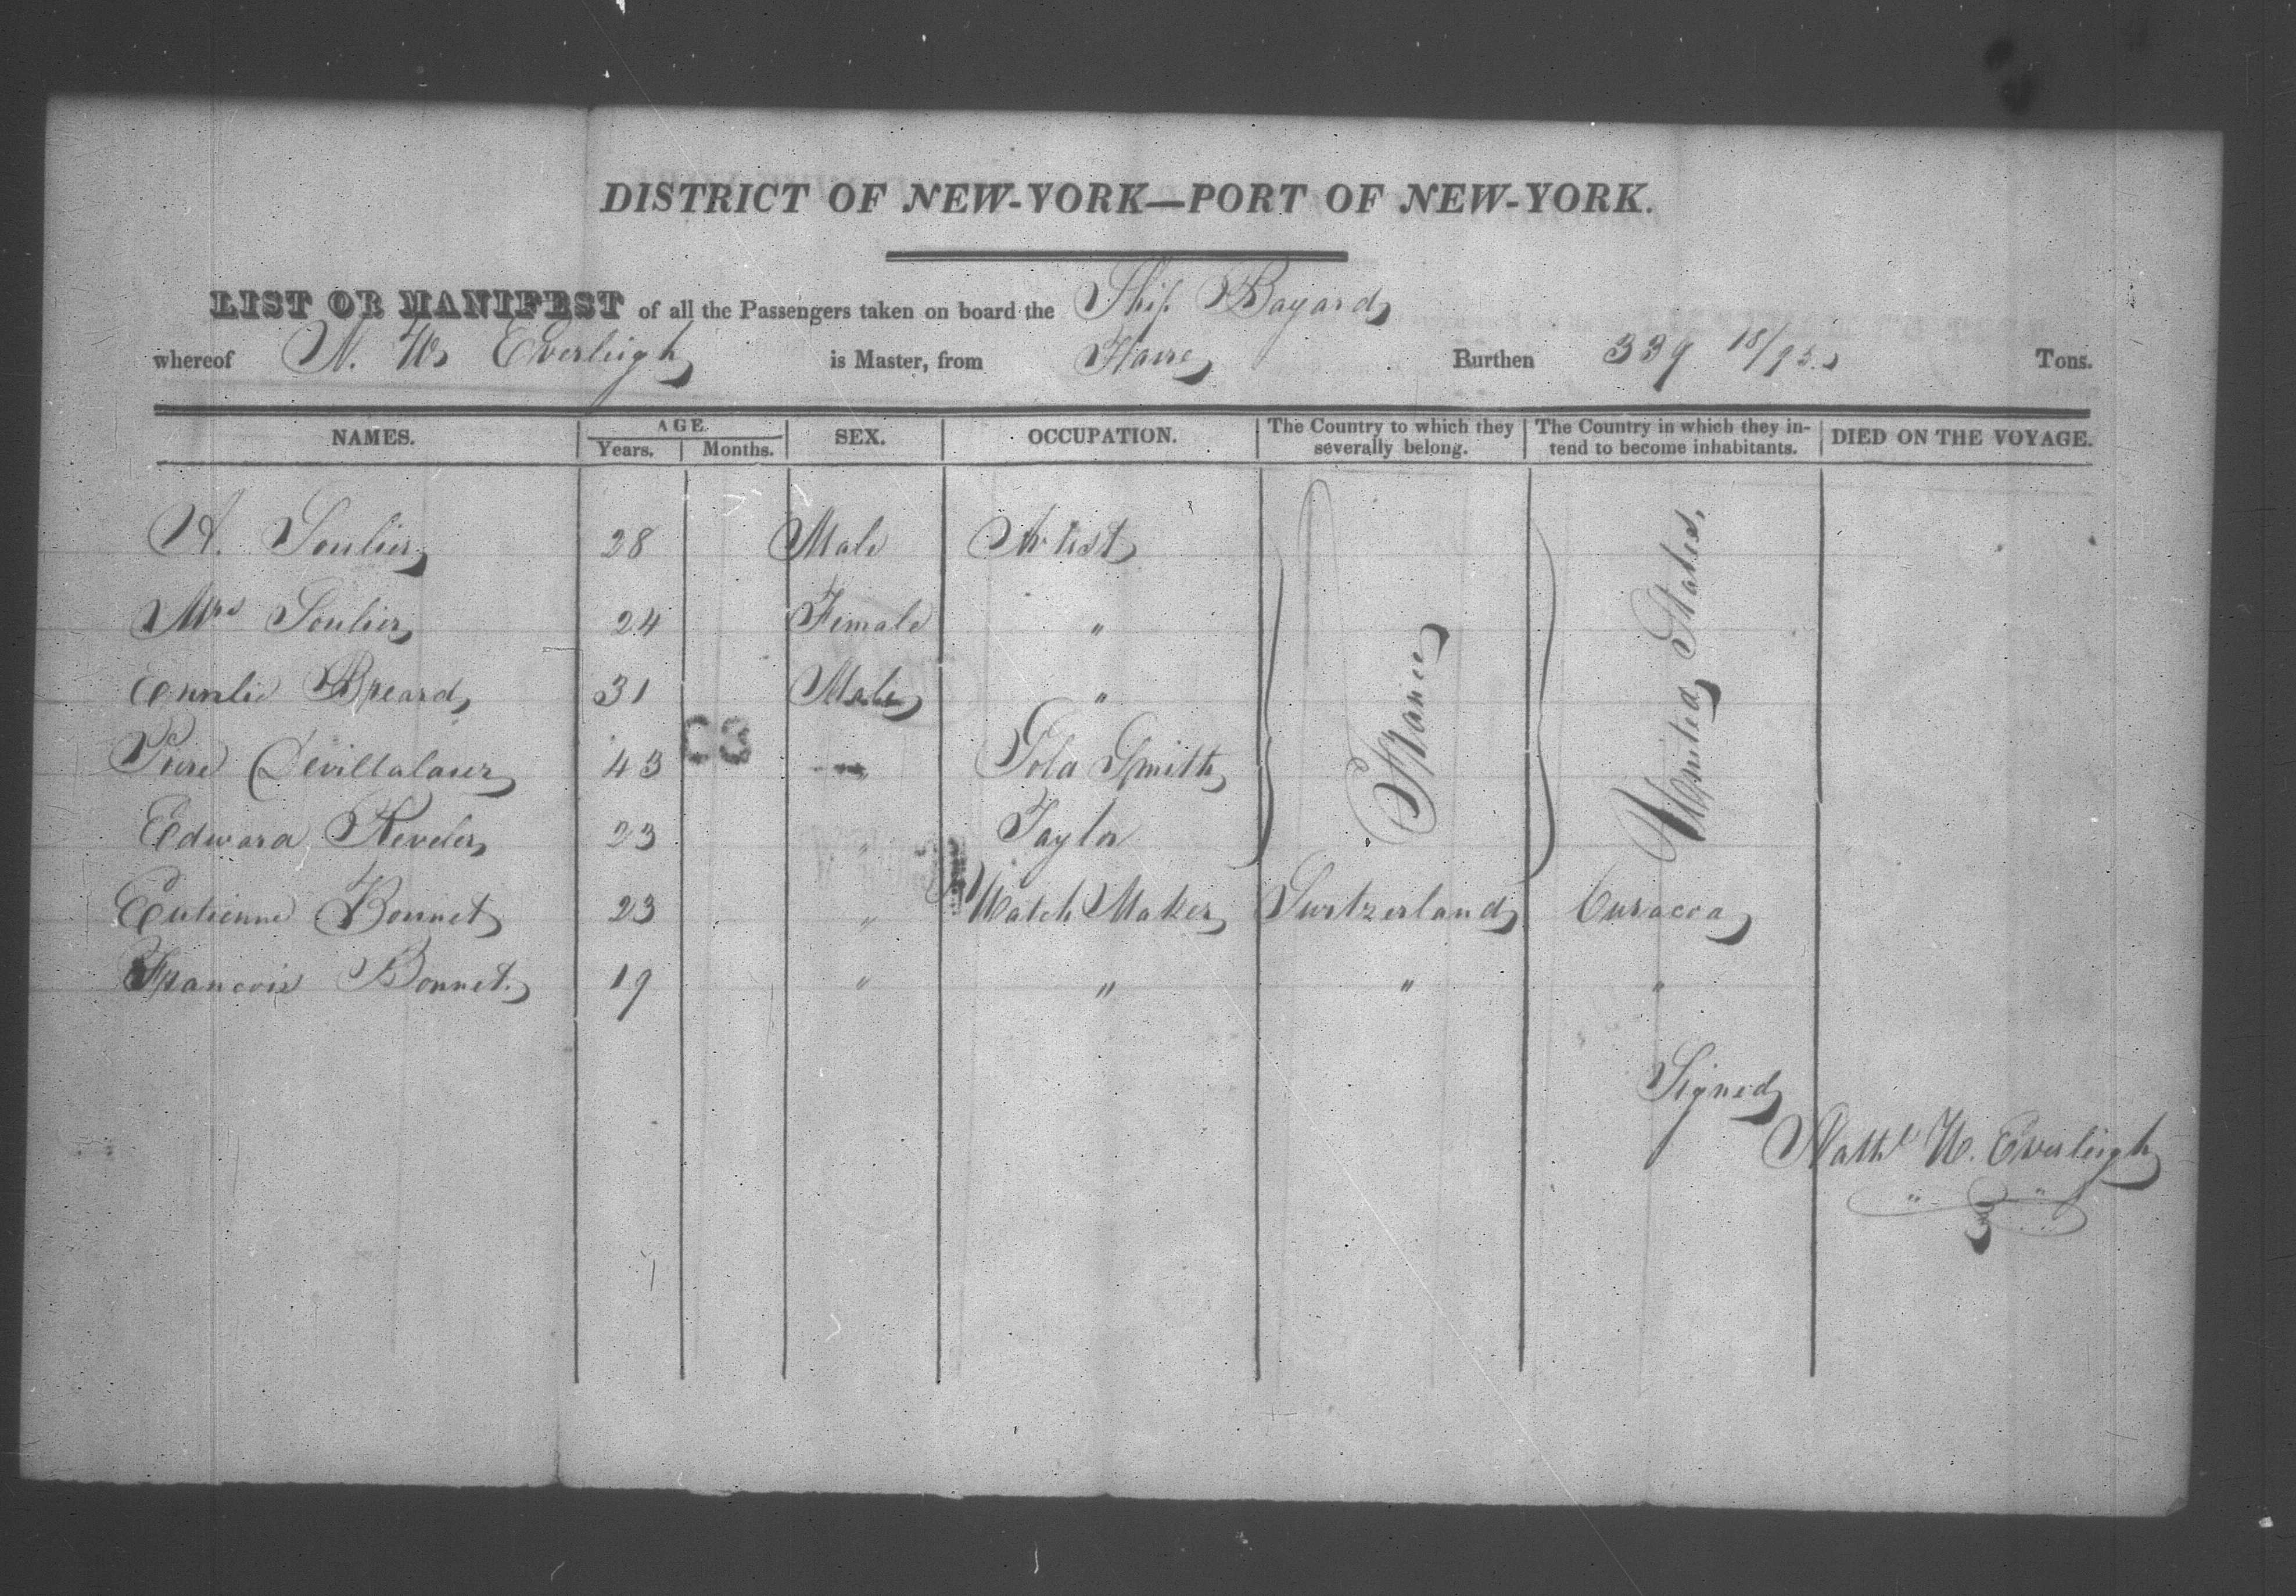 DISTRICT OF NEW-YORK—PORT OF NEW-YORK.
LIST OR MANIFEST of all the Passengers taken on board the Ship Bayard
whereof N. W. Everleigh is Master, from Havre Burthen 339 18/95 Tons.
NAMES. AGE. Years. Months. SEX. OCCUPATION. The Country to which they severally belong. The Country in which they intend to become inhabitants. DIED ON THE VOYAGE.
A. Soulier 28 Male Artist
Mrs Soulier 24 Female "
Emilie Breard 31 Male "
France United States.
63
43 " Gold Smith
Edward Reveler 23 " Taylor
Etienne Bonnet 23 " Watch Maker Switzerland Curacoa
Francois Bonnet. 19 " " " "
Signed
Nathl W. Everleigh